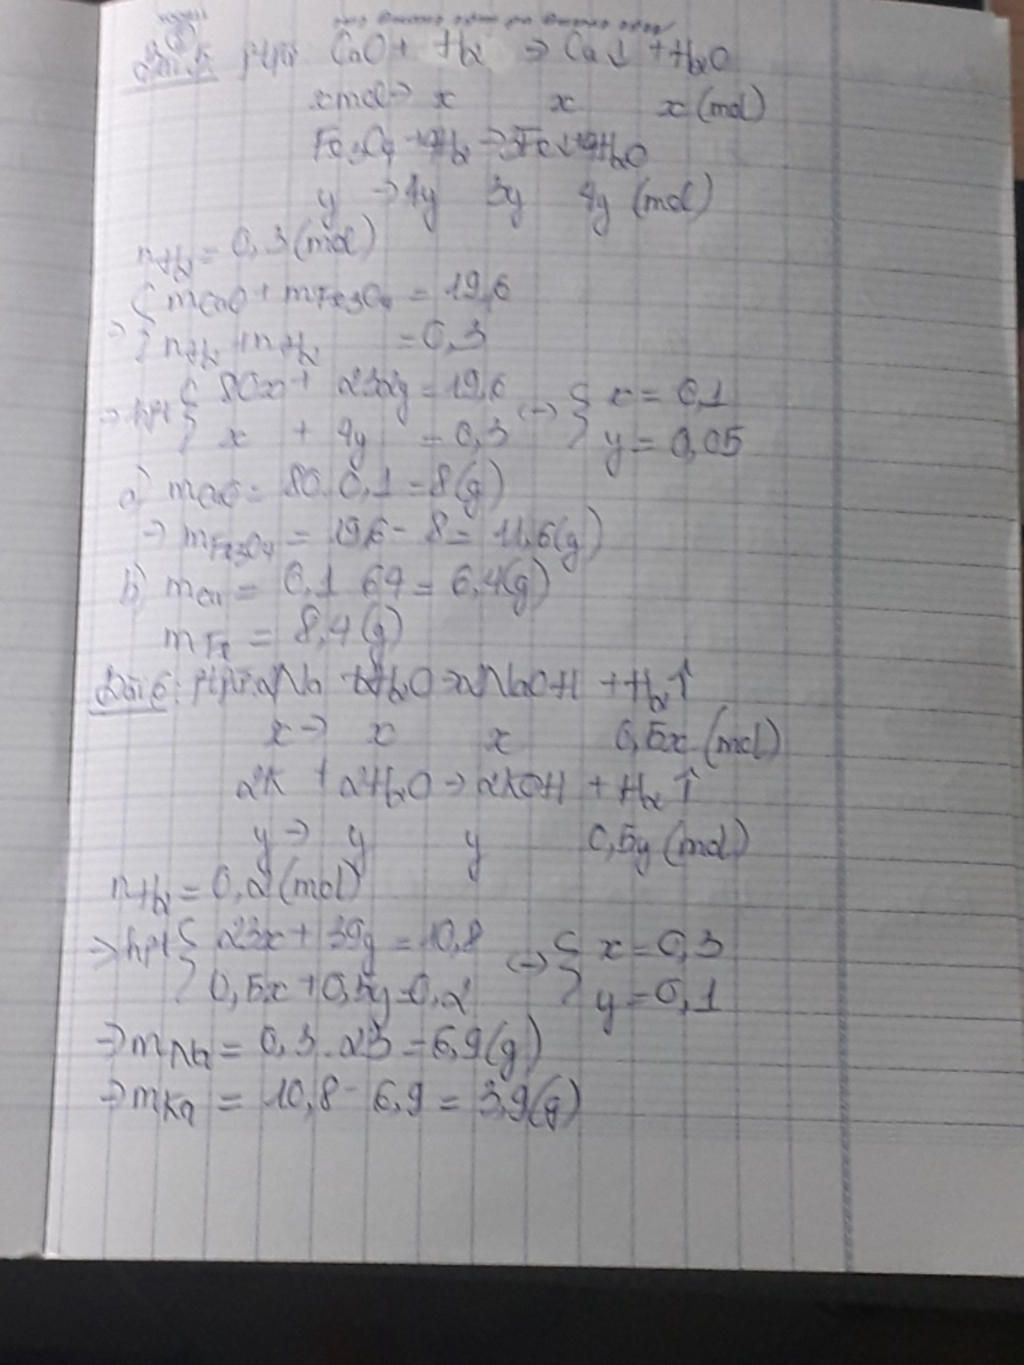 PTPƯ CuO + H2 → Cu↓ + H2O
x mol → x x x (mol)
Fe3O4 + 4H2 → 3Fe↓ + 4H2O
y → 4y 3y 4y (mol)
nH2 = 0,3 (mol)
{ mCuO + mFe3O4 = 19,6
⇒ { nH2 + nH2 = 0,3
→ hpt { 80x + 232y = 19,6 ↔ { x = 0,1
x + 4y = 0,3 y = 0,05
a) mCuO = 80.0,1 = 8 (g)
→ mFe3O4 = 19,6 - 8 = 11,6 (g)
b) mCu = 0,1 64 = 6,4 (g)
mFe = 8,4 (g)
Bài 6: PTPƯ: 2Na + 2H2O → 2NaOH + H2↑
x → x x 0,5x (mol)
2K + 2H2O → 2KOH + H2↑
y → y y 0,5y (mol)
nH2 = 0,2 (mol)
⇒ hpt { 23x + 39y = 10,8 ↔ { x = 0,3
0,5x + 0,5y = 0,2 y = 0,1
⇒ mNa = 0,3.23 = 6,9 (g)
⇒ mKa = 10,8 - 6,9 = 3,9 (g)